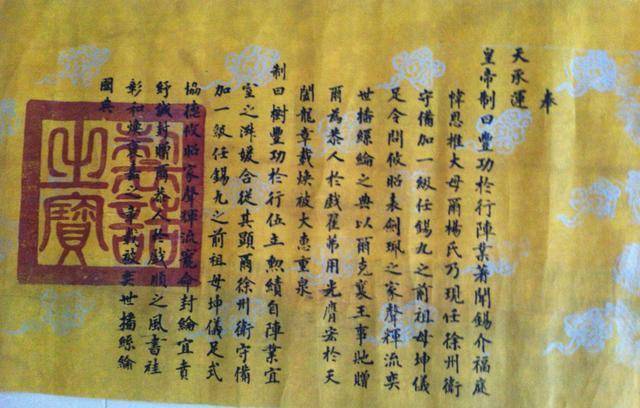 奉
天承運
皇帝制曰豐功於行陣業著閫錫介福庭
幃恩推大母爾楊氏乃現任徐州衛
守備加一級任錫九之前祖母坤儀
足令問攸昭表劍珮之家聲輝流奕
世播絲綸之典以爾克襄王事貤贈
爾為恭人於戲翟茀用光膺宏於天
闔龍章載煥被大惠重泉
制曰樹豐功於行伍主勲績自陣業宜
室之淋媛合從其顯爾徐州衛守備
加一級任錫九之前祖母坤儀足式
協德攸昭家聲輝流寵命封綸宜賁
紆封贈爾恭人於戲順之風書袿
彰和煥褒嘉之章載被奕世播絲綸
國典
制誥之寶